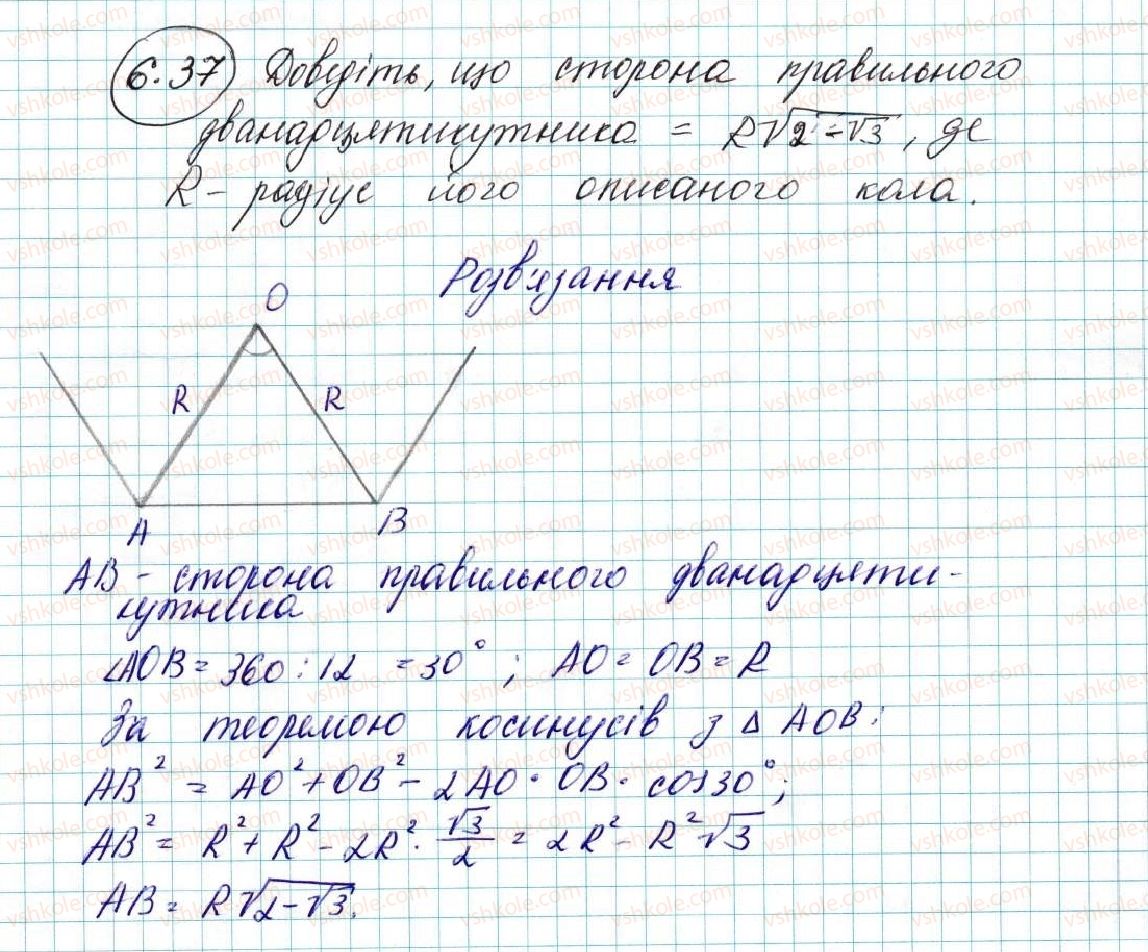 6.37 Доведіть, що сторона правильного
дванадцятикутника = R√2-√3, де
R - радіус його описаного кола.
Розв'язання
O
R R
A B
AB - сторона правильного дванадцяти-
кутника
∠AOB = 360 : 12 = 30°; AO = OB = R
За теоремою косинусів з △ AOB:
AB² = AO² + OB² - 2AO · OB · cos30°;
AB² = R² + R² - 2R² · √3/2 = 2R² - R²√3
AB = R√2-√3.
vshkole.com